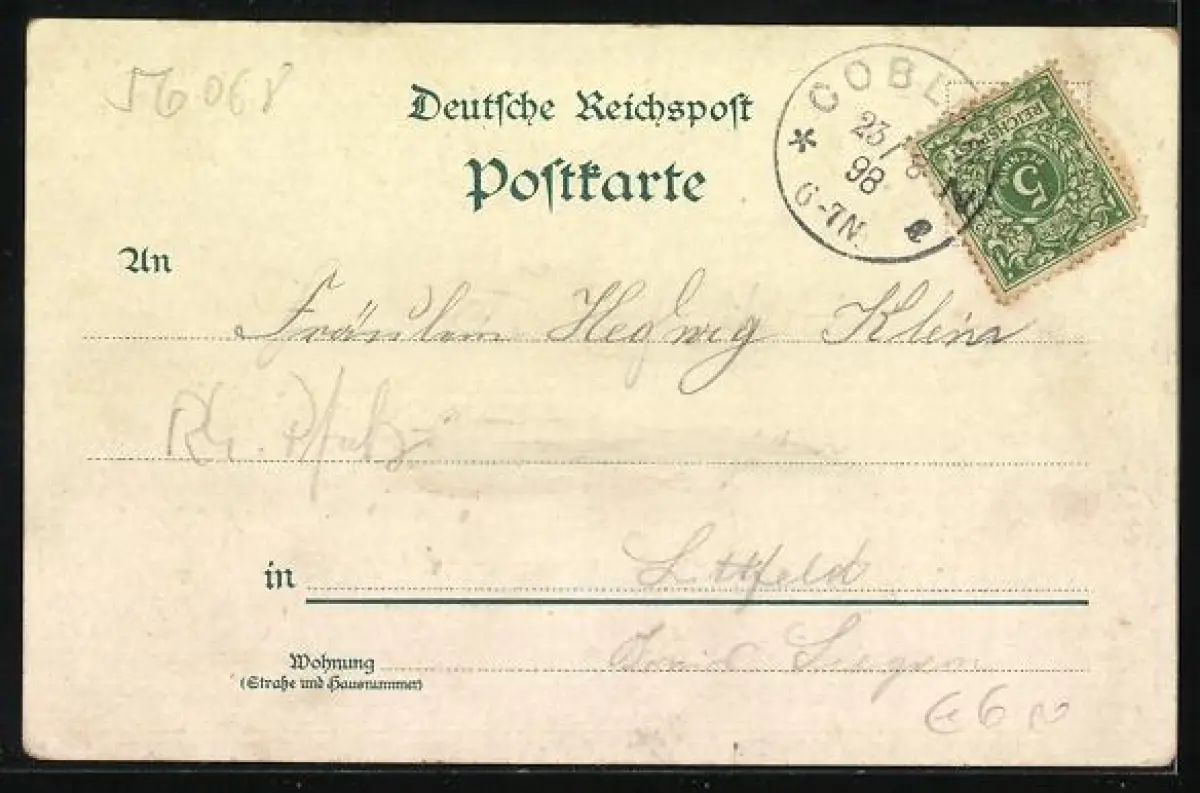 56068
Deutsche Reichspost
Postkarte
COBL
23/8
98
6-7N.
e
REICHSPOST
5
An
Fräulein Hedwig Klein
Rh. Pfalz
in Littfeld
Wohnung Kreis Siegen
(Straße und Hausnummer)